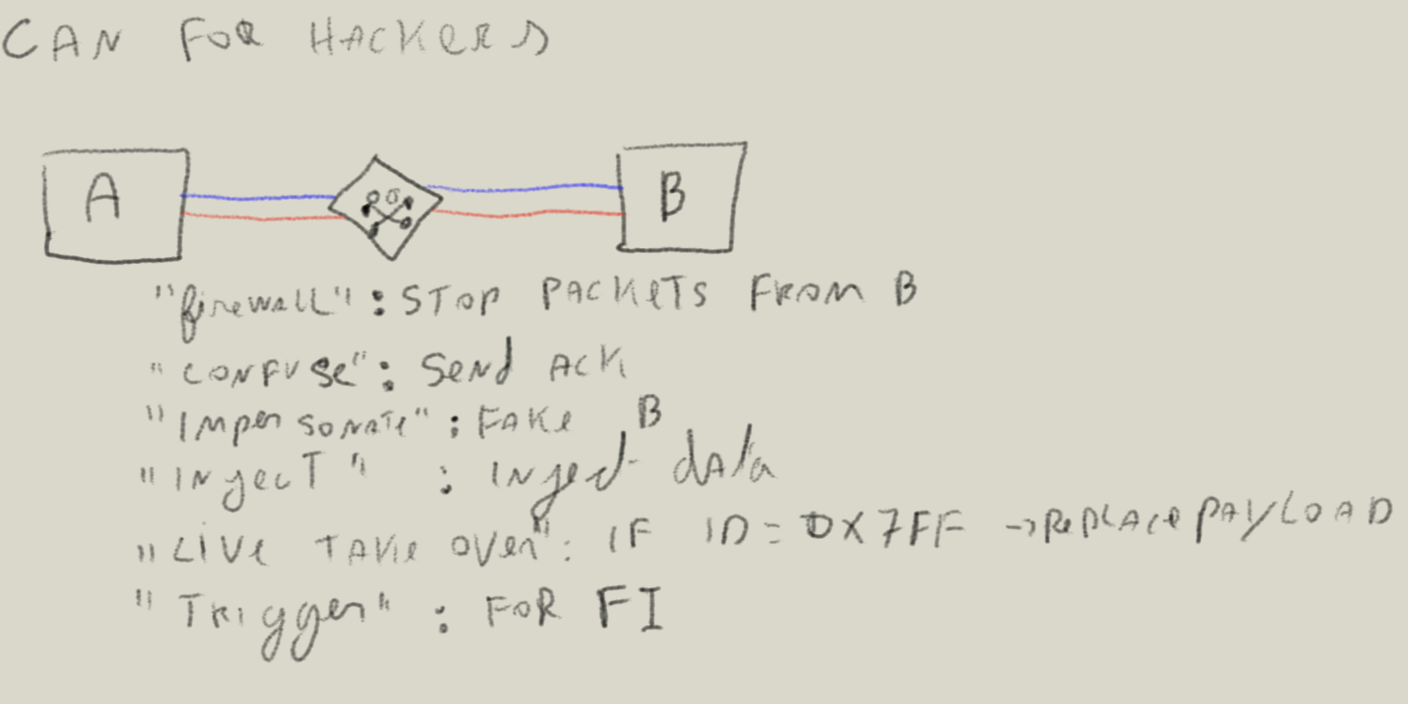 CAN FOR HACKERS
A
B
"firewall" : STOP PACKETS FROM B
"CONFUSE" : Send ACK
"Impersonate" : FAKE B
"INJECT" : INJECT DATA
"LIVE TAKE OVER" : IF ID = 0X7FF → REPLACE PAYLOAD
"TRIGGER" : FOR FI